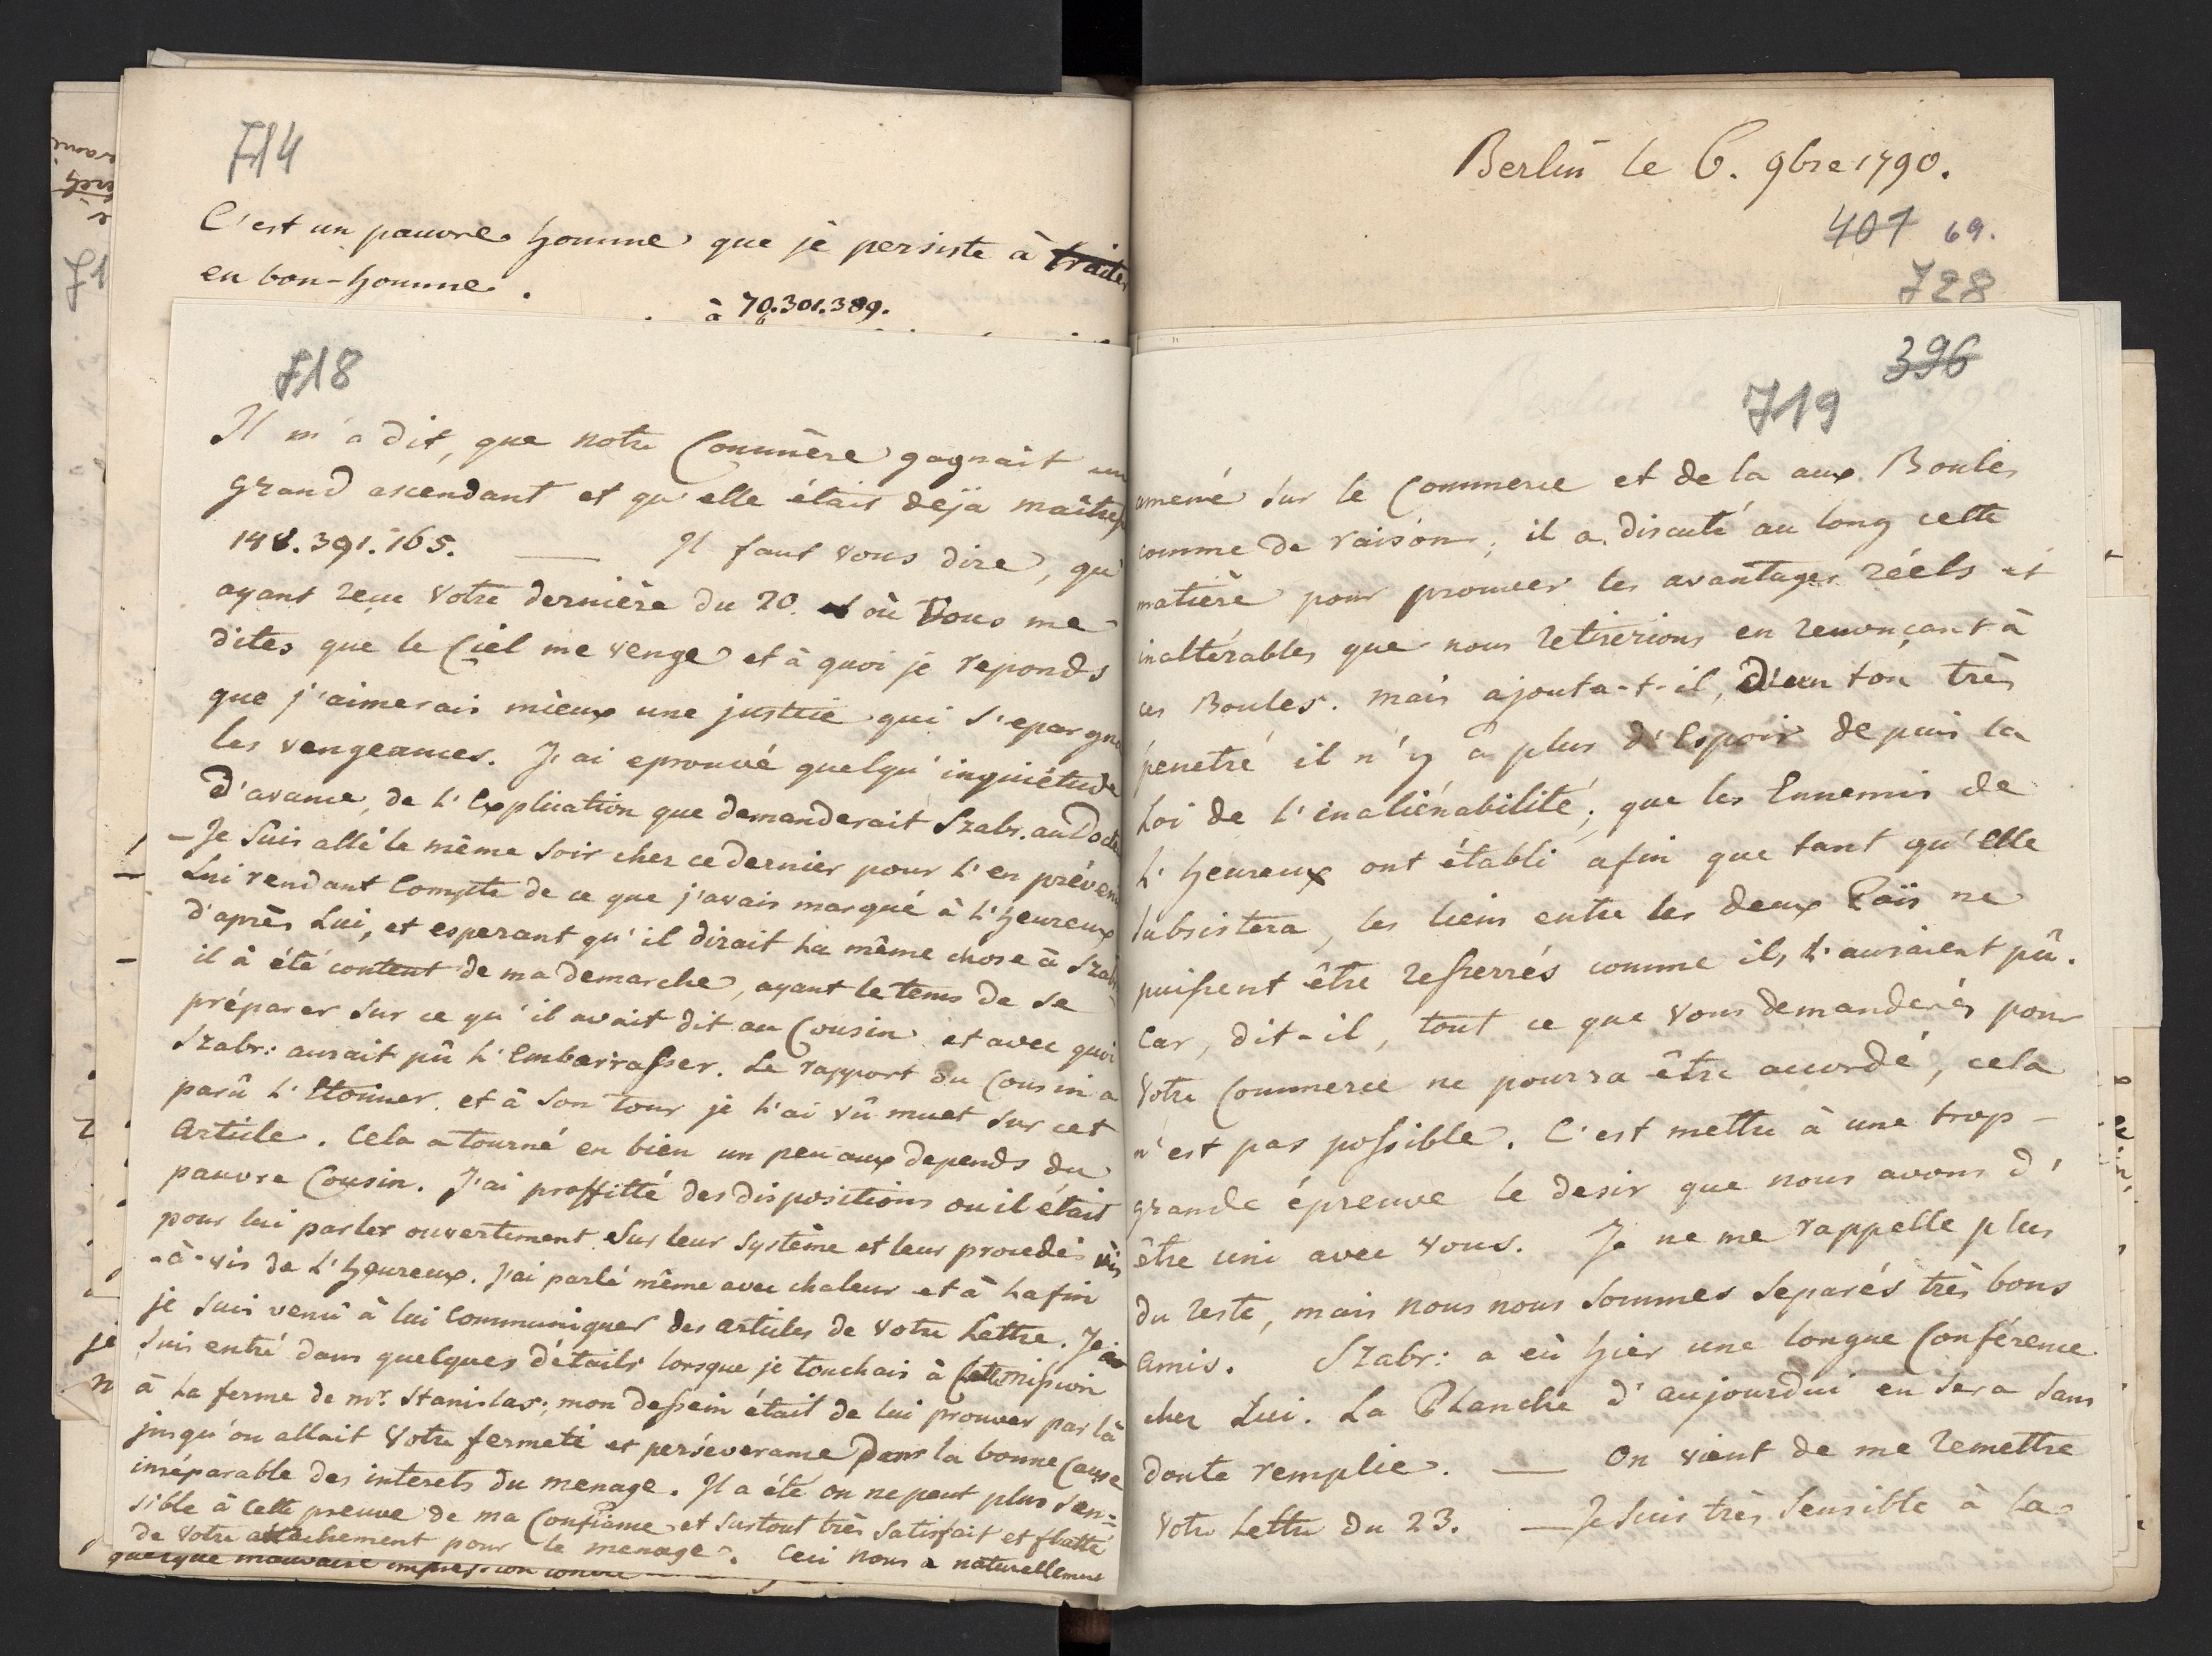 714
C'est un pauvre homme que je persiste à traiter
en bon-homme.
à 70.301.389.
718
Il m'a dit, que notre Commère gagnait un
grand ascendant et qu'elle était deja maîtresse
148.391.165. — Il faut vous dire, qu'
ayant reçu votre dernière du 20. où Vous me
dites que le Ciel me venge et à quoi je reponds
que j'aimerais mieux une justice qui s'epargna
les vengeances. J'ai eprouvé quelqu'inquiétude
d'avance, de l'Explication que demanderait Szabr. au
— Je suis allé le même soir chez ce dernier pour l'en prévenir
Lui rendant Compte de ce que j'avais marqué à l'heureux
d'après Lui, et esperant qu'il dirait la même chose à Szabr
il à été content de ma demarche, ayant le tems de se
préparer sur ce qu'il avait dit au Cousin et avec quoi
Szabr: aurait pû l'Embarrasser. Le rapport du Cousin a
parû l'Etonner. et à son tour je l'ai vû muet sur cet
Article. Cela a tourné en bien un peu aux depends du
pauvre Cousin. J'ai proffitté des dispositions ou il était
pour lui parler ouvertement sur leur Système et leur procedés vis
-à-vis de l'heureux. J'ai parlé même avec chaleur et à la fin
je suis venû à lui Communiquer des articles de votre Lettre. Je
suis entré dans quelques détails lorsque je touchais à Cette mission
à la ferme de mr. Stanislas; mon dessein était de lui prouver par là
jusqu'ou allait Votre fermeté et perséverance dans la bonne Cause
inséparable des interets du menage. Il a été on ne peut plus sen=
sible à Cette preuve de ma Confiance et surtout très satisfait et flatté
de votre attachement pour le menage. Ceci nous a naturellement
quelque mauvaise impression contre
Berlin le 6. 9bre 1790.
407 69.
728
396
719
amené sur le Commerce et de la aux Boules
comme de raison; il a discuté au long cette
matière pour prouver les avantages réels et
inaltérables que nous retirerions en renonçant à
ces Boules. mais ajouta-t-il, d'un ton très
penetré il n'y a plus d'Espoir depuis la
Loi de l'inaliénabilité; que les Ennemis de
l'heureux ont établi afin que tant qu'elle
subsistera, les liens entre les deux Païs ne
puissent être resserrés comme ils l'auraient pû.
Car, dit-il, tout ce que vous demanderés pour
Votre Commerce ne pourra être accordé, cela
n'est pas possible. C'est mettre à une trop-
grande épreuve le desir que nous avons d'
être uni avec vous. Je ne me rappelle plus
du reste, mais nous nous sommes separés très bons
amis. Szabr: a eû hier une longue Conférence
chez Lui. La Planche d'aujourdui en sera sans
doute remplie. — On vient de me remettre
votre Lettre du 23. — Je suis très sensible à la